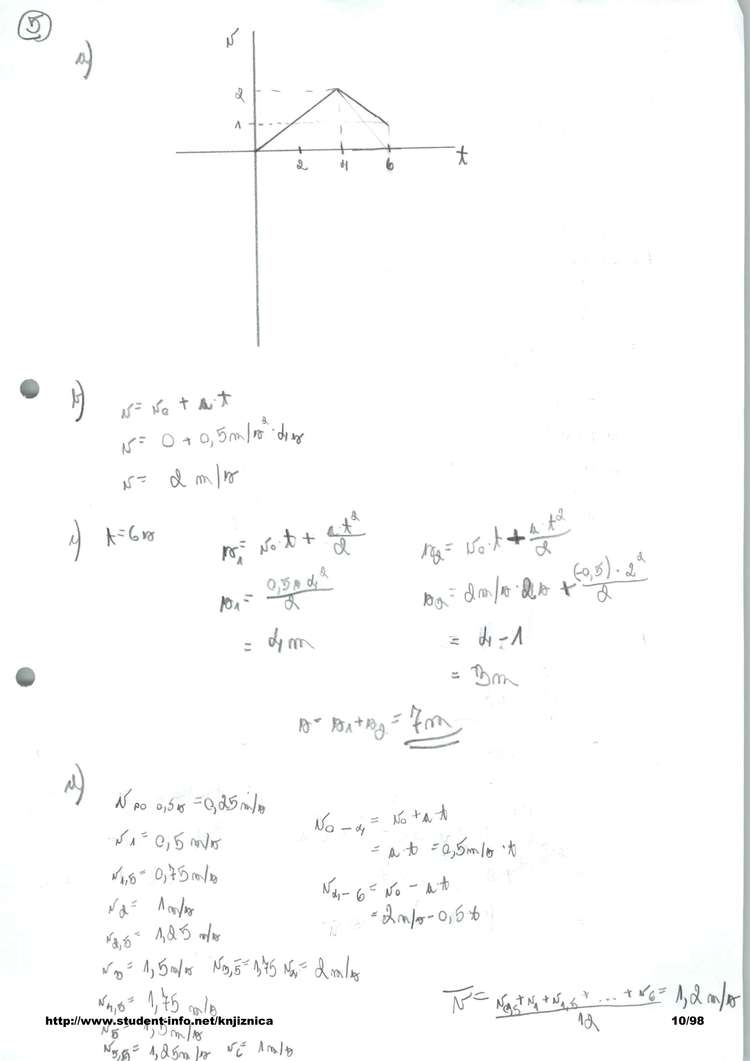 5
a)
v
2
1
2 4 6 t
b)
v = v₀ + a·t
v = 0 + 0,5 m/s²·4s
v = 2 m/s
c) t=6s
s₁ = v₀·t + a·t²/2
s₁ = 0,5·4²/2
= 4m
s₂ = v₀·t + a·t²/2
s₂ = 2m/s·2s + (-0,5)·2²/2
= 4-1
= 3m
s = s₁+s₂ = 7m
d)
v po 0,5s = 0,25 m/s
v₁ = 0,5 m/s
v₁,₅ = 0,75 m/s
v₂ = 1 m/s
v₂,₅ = 1,25 m/s
v₃ = 1,5 m/s v₃,₅ = 1,75 v₄ = 2 m/s
v₄,₅ = 1,75 m/s
v₅ = 1,5 m/s
v₅,₅ = 1,25 m/s v₆ = 1 m/s
v₀₋₄ = v₀ + a t
= a t = 0,5 m/s·t
v₄₋₆ = v₀ - a t
= 2 m/s - 0,5 t
v̅ = v₀,₅+v₁+v₁,₅+...+v₆/12 = 1,2 m/s
http://www.student-info.net/knjiznica 10/98